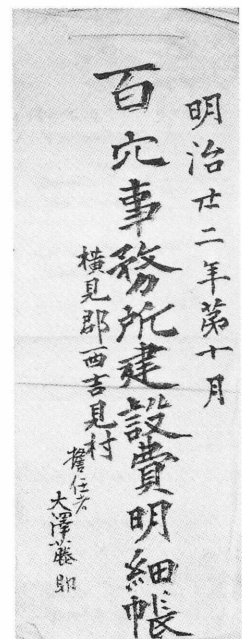 明治廿二年第十月
百穴事務所建設費明細帳
横見郡西吉見村
擔任者
大澤藤助